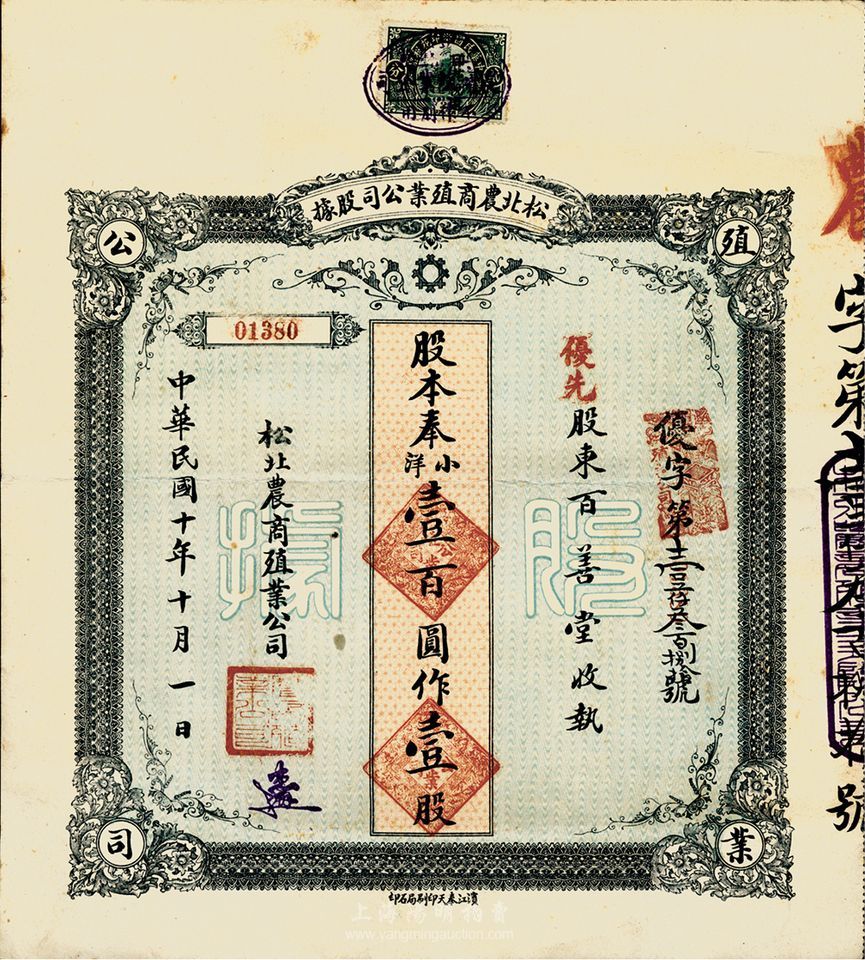 松北農商殖業公司股據
殖
業
公
司
農
字第
號
優字第壹仟叁百捌拾號
優先股東百善堂收執
股據
股本奉小洋壹百圓作壹股
01380
松北農商殖業公司
中華民國十年十月一日
濱江東天印刷局石印
上海陽明拍賣
www.yangmingauction.com